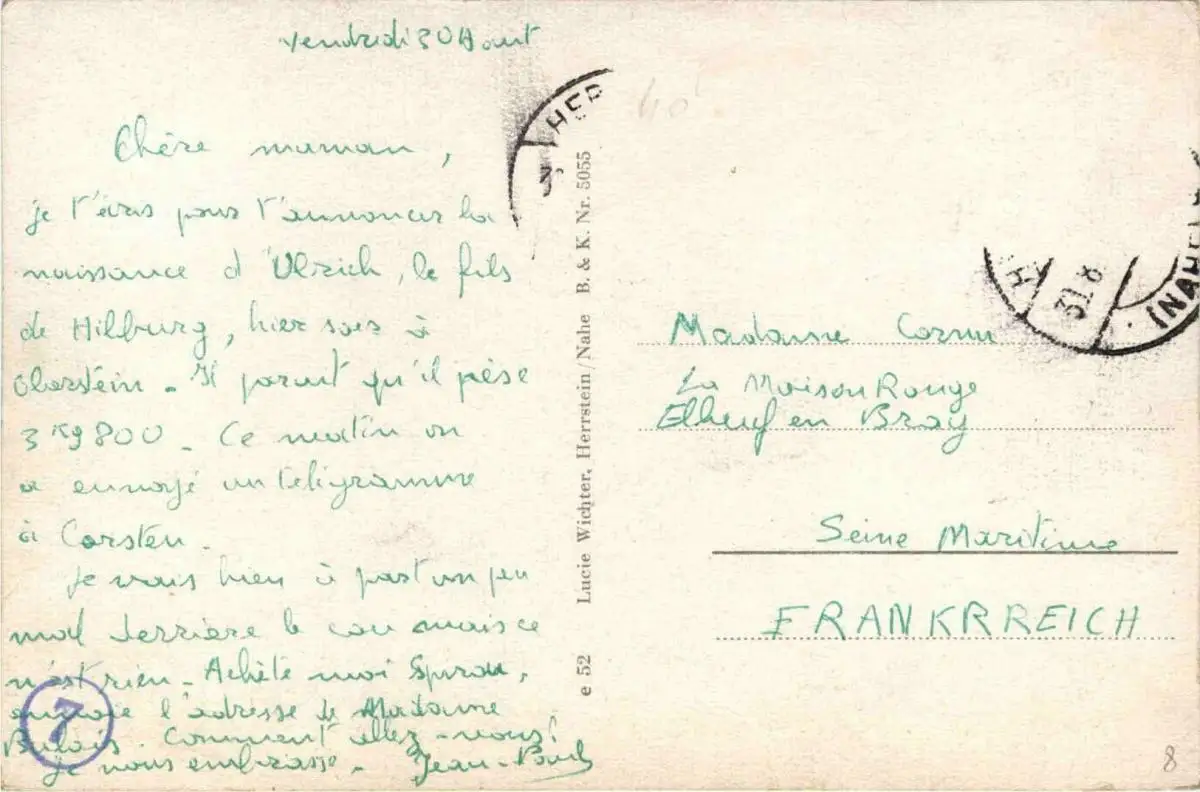 Vendredi 30 Aout
Chère maman,
je t'écris pour t'annoncer la
naissance d'Ulrich, le fils
de Hilburg, hier soir à
Oberstein. Il parait qu'il pèse
3 Kg 800. Ce matin on
a envoyé un télégramme
à Carsten.
Je vais bien à part un peu
mal derrière le cou mais ce
n'est rien. Achète moi Spirou,
envoie l'adresse de Madame
Comment allez-vous?
Je vous embrasse. Jean-Paul
7
Lucie Wichter, Herrstein/Nahe B. & K. Nr. 5055
e 52
HER
40
31.8
(NAHE)
Madame Cornu
La Maison Rouge
Elbeuf en Bray
Seine Maritime
FRANKRREICH
8